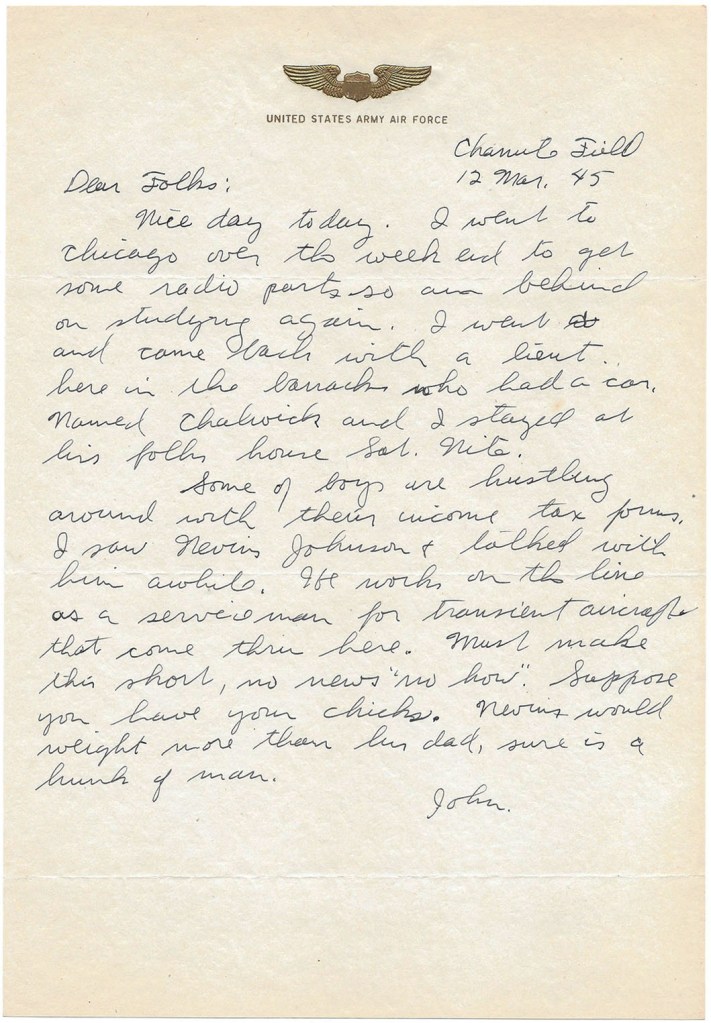 UNITED STATES ARMY AIR FORCE
Chanute Field
12 Mar. 45
Dear Folks:
Nice day today. I went to
Chicago over the week end to get
some radio parts so am behind
on studying again. I went
and came back with a lieut.
here in the barracks who had a car.
Named Chalwick and I stayed at
his folks house Sat. Nite.
Some of boys are hustling
around with their income tax forms.
I saw Nevins Johnson & talked with
him awhile. He works on the line
as a service man for transient aircraft
that come thru here. Must make
this short, no news "no how". Suppose
you have your chicks. Nevins would
weight more than his dad, sure is a
hunk of man.
John.